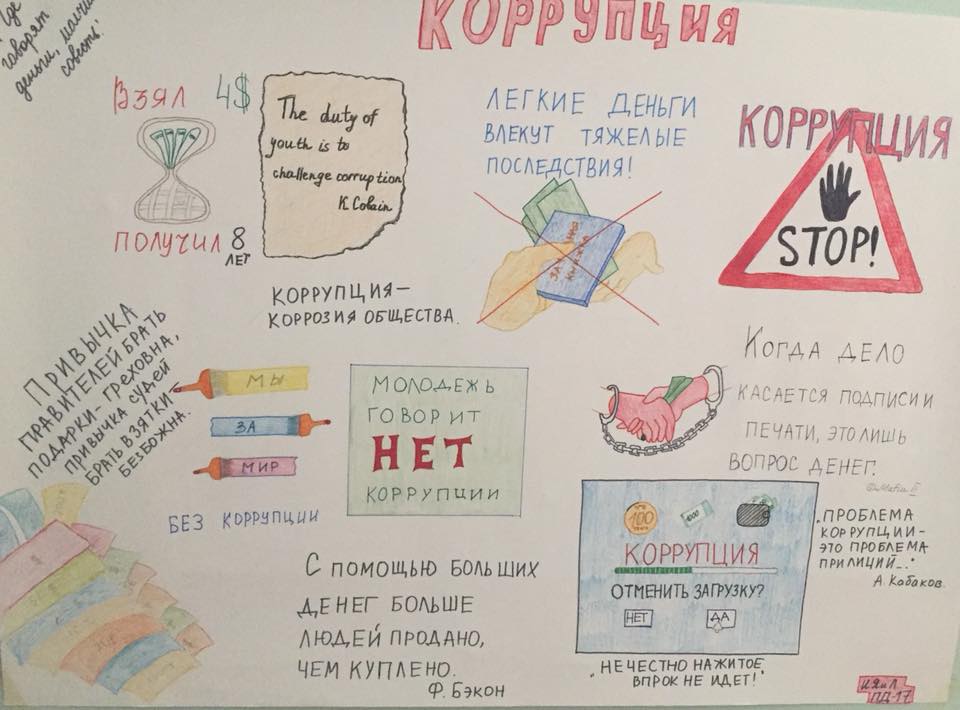 КОРРУПЦИЯ
Где
говорят
деньги, молчит
совесть.
ВЗЯЛ 4$
ПОЛУЧИЛ 8
ЛЕТ
The duty of
youth is to
challenge corruption
K. Cobain
ЛЕГКИЕ ДЕНЬГИ
ВЛЕКУТ ТЯЖЕЛЫЕ
ПОСЛЕДСТВИЯ!
КОРРУПЦИЯ
STOP!
КОРРУПЦИЯ–
КОРРОЗИЯ ОБЩЕСТВА.
ПРИВЫЧКА
ПРАВИТЕЛЕЙ БРАТЬ
ПОДАРКИ- ГРЕХОВНА,
ПРИВЫЧКА СУДЕЙ
БРАТЬ ВЗЯТКИ-
БЕЗБОЖНА.
МЫ
ЗА
МИР
БЕЗ КОРРУПЦИИ
МОЛОДЕЖЬ
ГОВОРИТ
НЕТ
КОРРУПЦИИ
КОГДА ДЕЛО
КАСАЕТСЯ ПОДПИСИ И
ПЕЧАТИ, ЭТО ЛИШЬ
ВОПРОС ДЕНЕГ.
С ПОМОЩЬЮ БОЛЬШИХ
ДЕНЕГ БОЛЬШЕ
ЛЮДЕЙ ПРОДАНО,
ЧЕМ КУПЛЕНО.
Ф. БЭКОН
100
1000
КОРРУПЦИЯ
ОТМЕНИТЬ ЗАГРУЗКУ?
НЕТ ДА
„НЕЧЕСТНО НАЖИТОЕ
ВПРОК НЕ ИДЕТ!"
„ПРОБЛЕМА
КОРРУПЦИИ –
ЭТО ПРОБЛЕМА
ПРИЛИЦИЙ..."
А. Кабаков.
ИЯиЛ
ПД-17